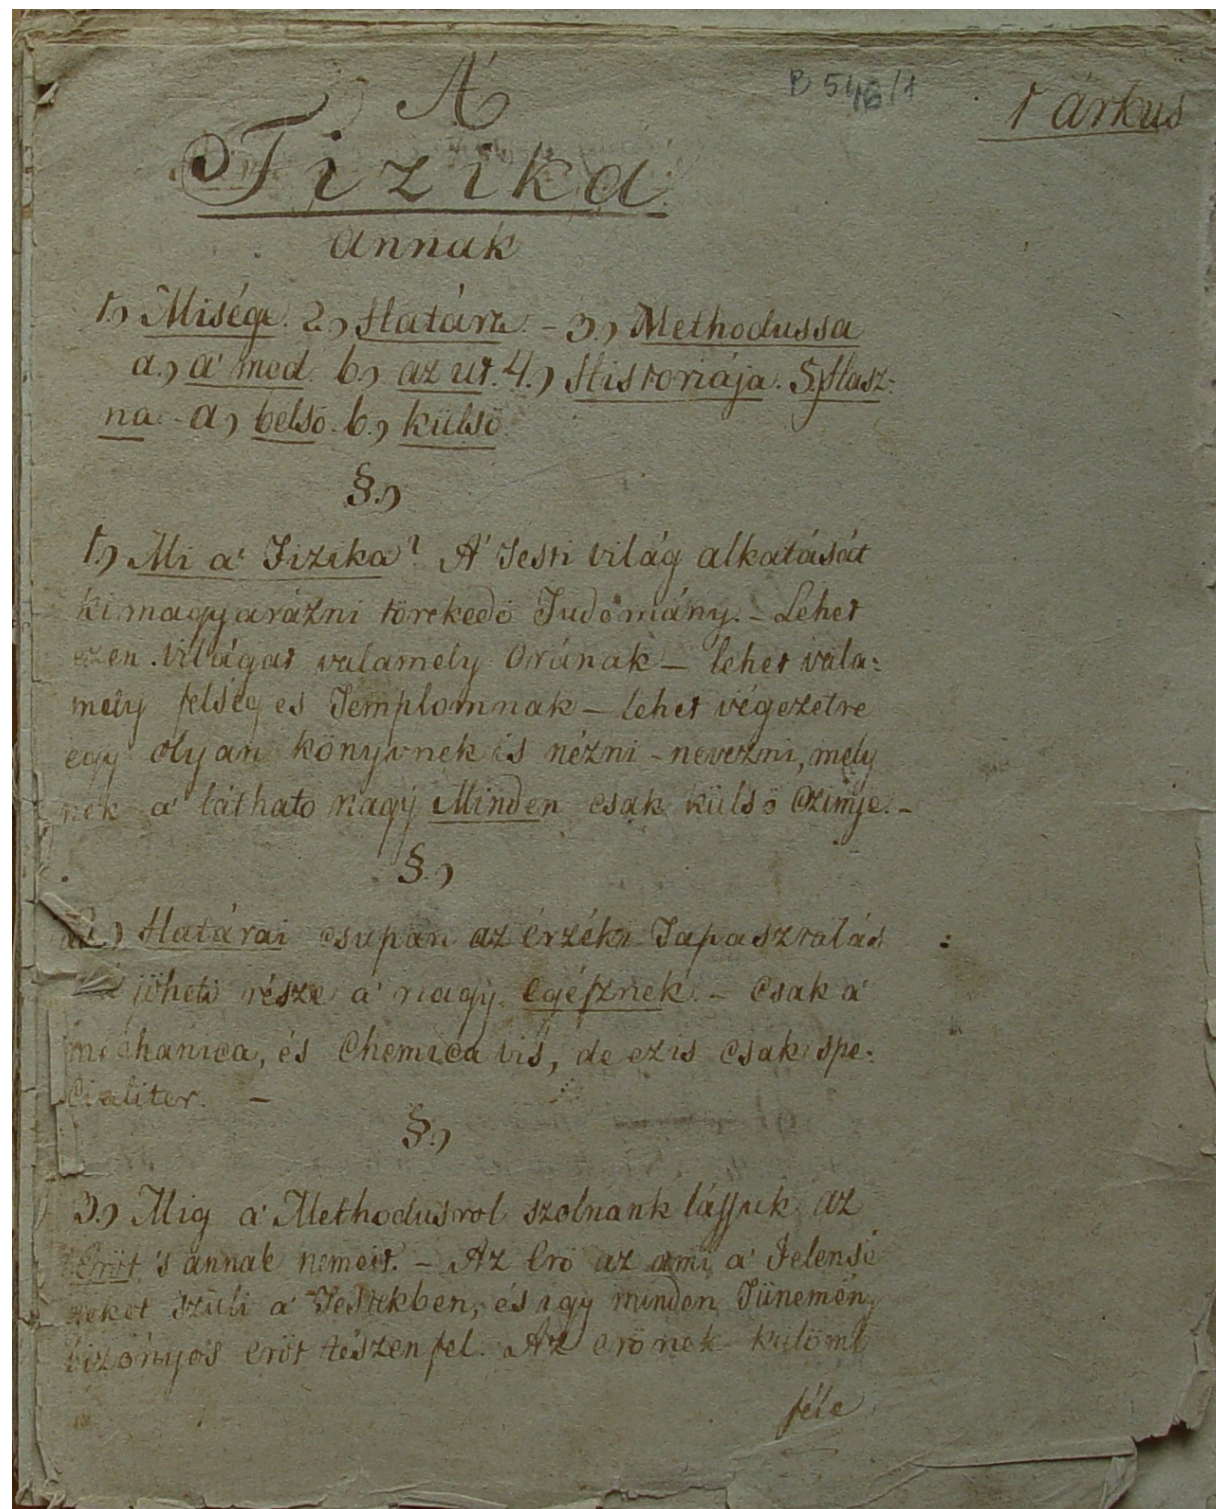 A'
B 546/1
1 árkus
Fizika
annak
1.) Misége. 2.) Határa. - 3.) Methodussa
a.) a' mod b.) az ut. 4.) Historiája. 5.) Hasz:
na - a) belsö. b.) külsö.
§.)
1.) Mi a' Fizika? A' Testi világ alkatását
kimagyarázni törekedö Tudomány. - Lehet
ezen világat valamely Orának - lehet vala:
mely felséges Templomnak - lehet végezetre
egy olyan könyvnek is nézni - nevezni, mely
nek a' láthato nagy Minden csak külsö Czimje. -
§.)
2.) Határai csupán az érzéki Tapasztalás
jöheti része a' nagy egésznek. - Csak a'
mechanica, és Chemica vis, de ez is csak spe:
cialiter. -
§.)
3.) Mig a' Methodusrol szolnank lássuk az
Eröt, 's annak nemeit. - Az Erö az ami a' Jelensé
geket szüli a' Testekben, és igy minden Tünemény
bizonyos eröt tészen fel. Az erönek külömb
féle